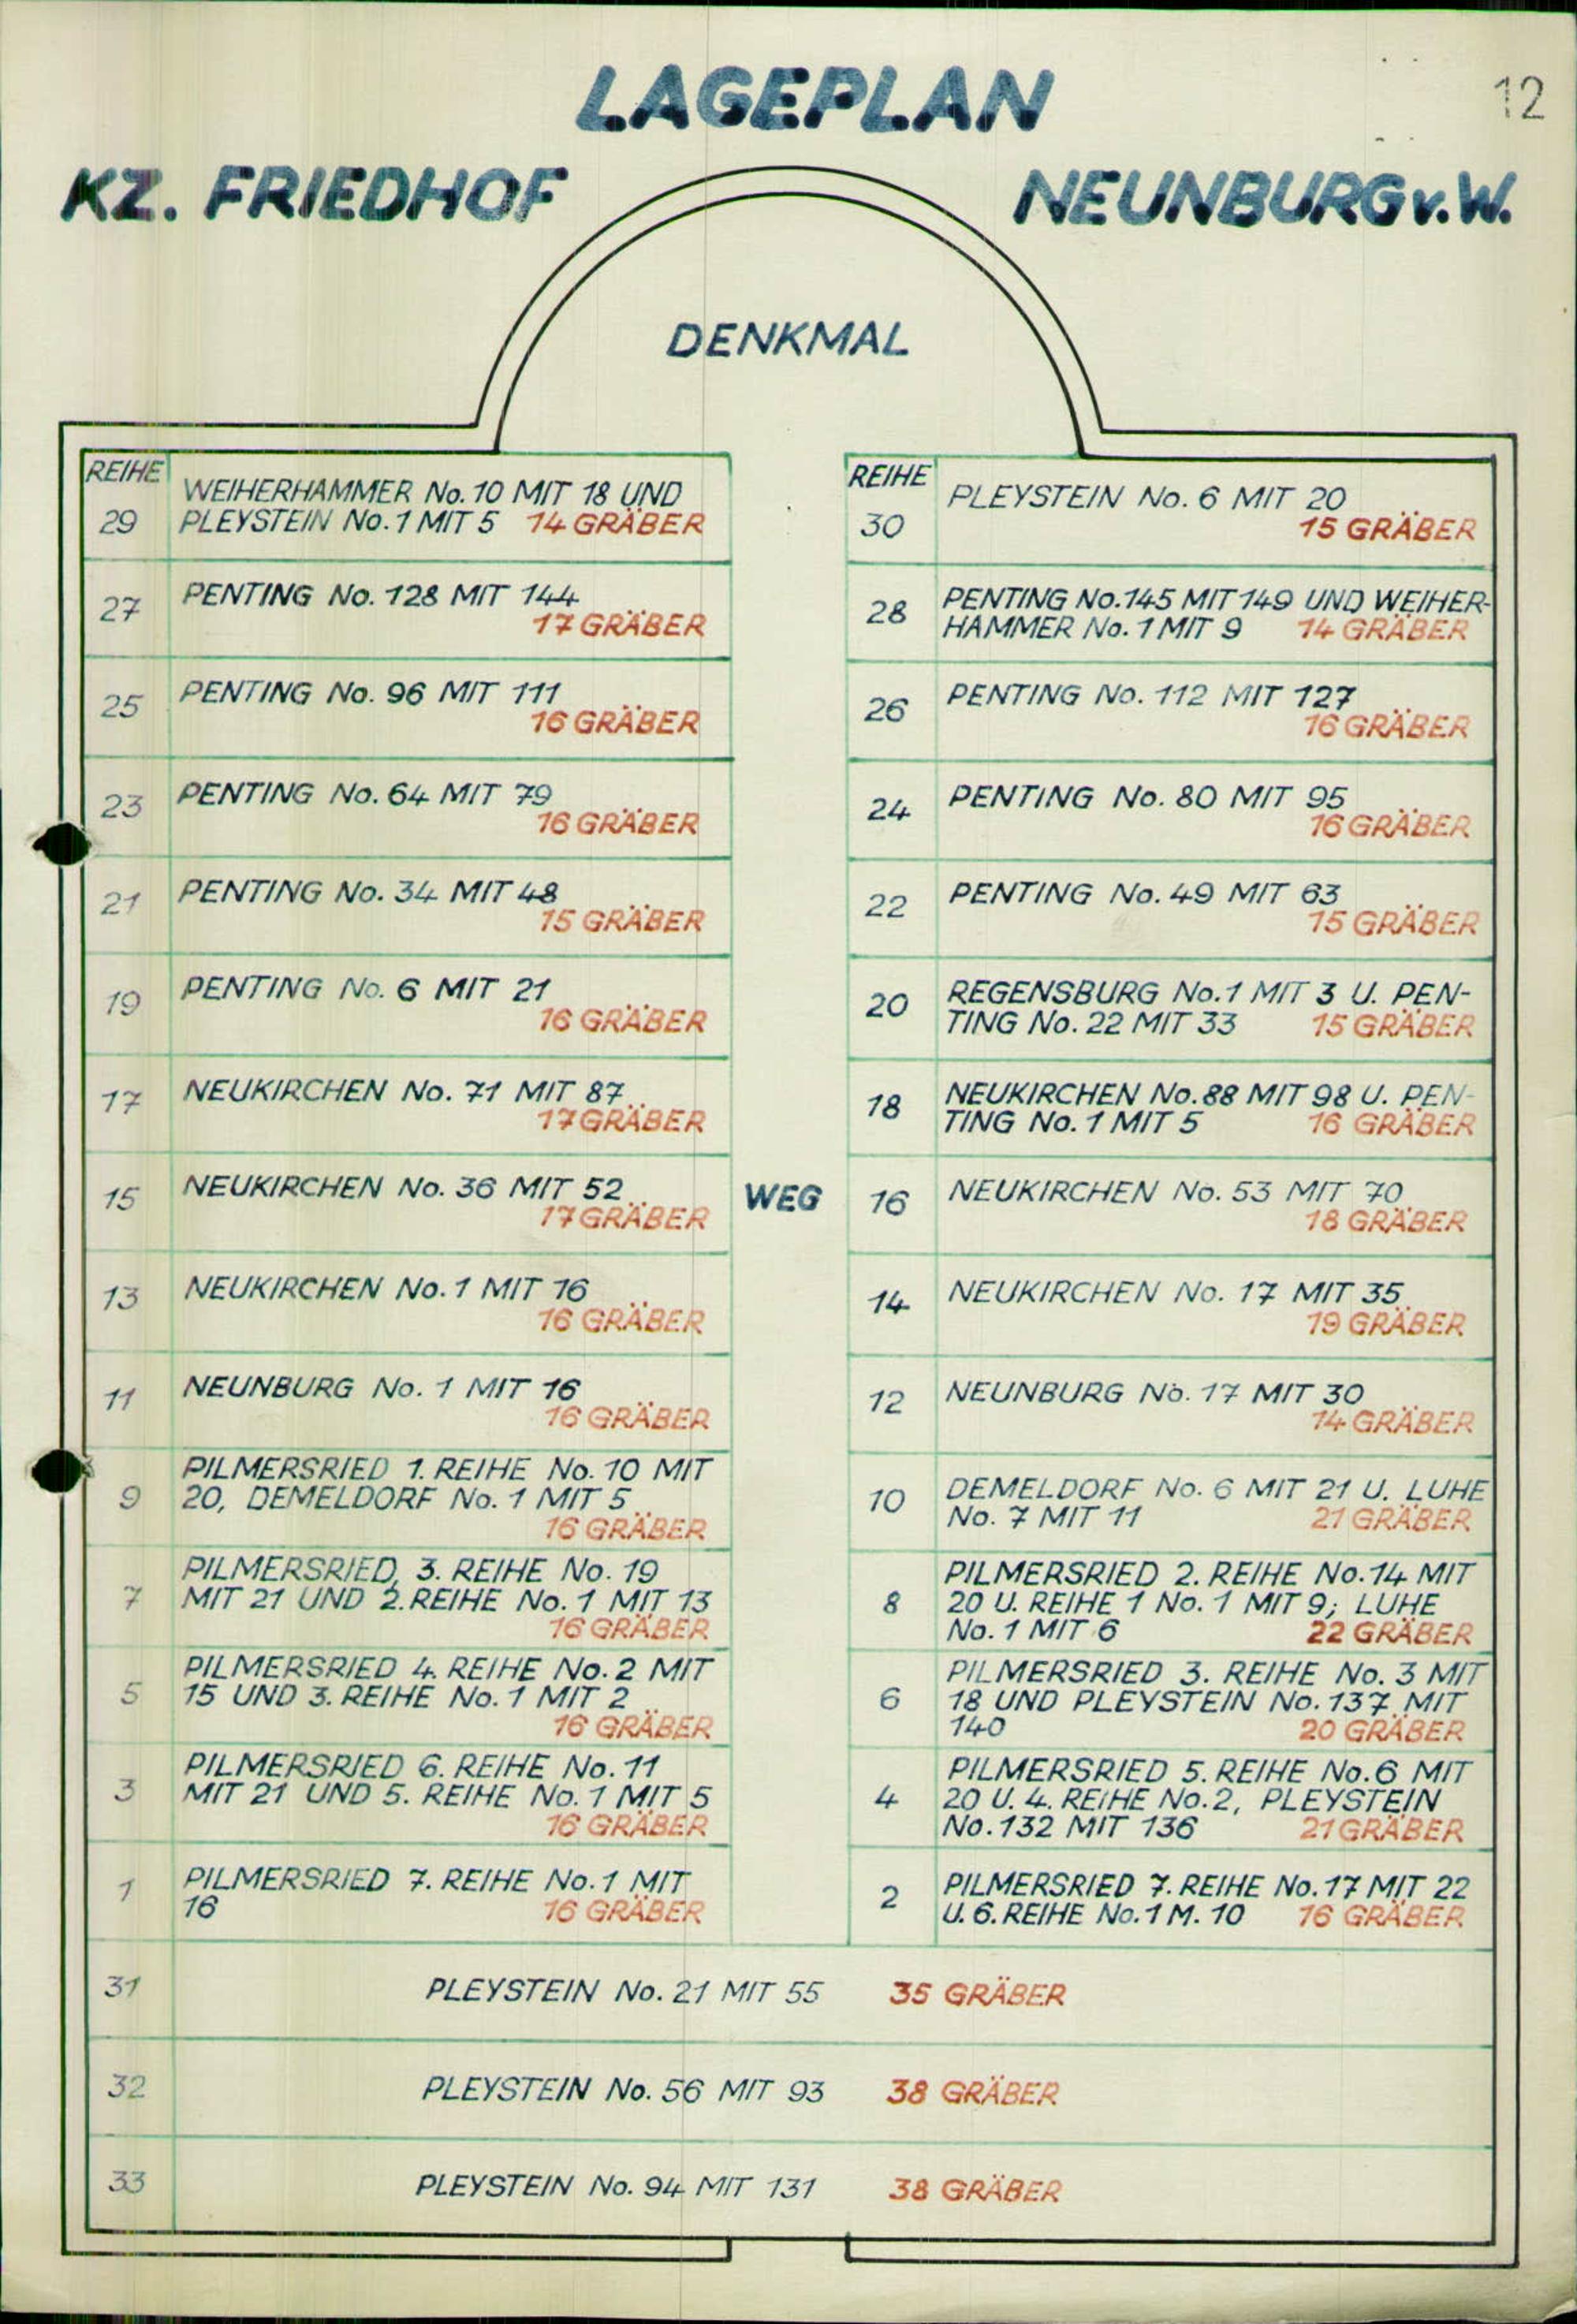 12
LAGEPLAN
KZ. FRIEDHOF
NEUNBURG v. W.
DENKMAL
REIHE
29
WEIHERHAMMER No. 10 MIT 18 UND
PLEYSTEIN No. 1 MIT 5 14 GRÄBER
27
PENTING No. 128 MIT 144
17 GRÄBER
25
PENTING No. 96 MIT 111
16 GRÄBER
23
PENTING No. 64 MIT 79
16 GRÄBER
21
PENTING No. 34 MIT 48
15 GRÄBER
19
PENTING No. 6 MIT 21
16 GRÄBER
17
NEUKIRCHEN No. 71 MIT 87
17 GRÄBER
15
NEUKIRCHEN No. 36 MIT 52
17 GRÄBER
13
NEUKIRCHEN No. 1 MIT 16
16 GRÄBER
11
NEUNBURG No. 1 MIT 16
16 GRÄBER
9
PILMERSRIED 1. REIHE No. 10 MIT
20, DEMELDORF No. 1 MIT 5
16 GRÄBER
7
PILMERSRIED, 3. REIHE No. 19
MIT 21 UND 2. REIHE No. 1 MIT 13
16 GRÄBER
5
PILMERSRIED 4. REIHE No. 2 MIT
15 UND 3. REIHE No. 1 MIT 2
16 GRÄBER
3
PILMERSRIED 6. REIHE No. 11
MIT 21 UND 5. REIHE No. 1 MIT 5
16 GRÄBER
1
PILMERSRIED 7. REIHE No. 1 MIT
16 16 GRÄBER
WEG
REIHE
30
PLEYSTEIN No. 6 MIT 20
15 GRÄBER
28
PENTING No. 145 MIT 149 UND WEIHER-
HAMMER No. 1 MIT 9 14 GRÄBER
26
PENTING No. 112 MIT 127
16 GRÄBER
24
PENTING No. 80 MIT 95
16 GRÄBER
22
PENTING No. 49 MIT 63
15 GRÄBER
20
REGENSBURG No. 1 MIT 3 U. PEN-
TING No. 22 MIT 33 15 GRÄBER
18
NEUKIRCHEN No. 88 MIT 98 U. PEN-
TING No. 1 MIT 5 16 GRÄBER
16
NEUKIRCHEN No. 53 MIT 70
18 GRÄBER
14
NEUKIRCHEN No. 17 MIT 35
19 GRÄBER
12
NEUNBURG No. 17 MIT 30
14 GRÄBER
10
DEMELDORF No. 6 MIT 21 U. LUHE
No. 7 MIT 11 21 GRÄBER
8
PILMERSRIED 2. REIHE No. 14 MIT
20 U. REIHE 1 No. 1 MIT 9; LUHE
No. 1 MIT 6 22 GRÄBER
6
PILMERSRIED 3. REIHE No. 3 MIT
18 UND PLEYSTEIN No. 137 MIT
140 20 GRÄBER
4
PILMERSRIED 5. REIHE No. 6 MIT
20 U. 4. REIHE No. 2, PLEYSTEIN
No. 132 MIT 136 21 GRÄBER
2
PILMERSRIED 7. REIHE No. 17 MIT 22
U. 6. REIHE No. 1 M. 10 16 GRÄBER
31 PLEYSTEIN No. 21 MIT 55 35 GRÄBER
32 PLEYSTEIN No. 56 MIT 93 38 GRÄBER
33 PLEYSTEIN No. 94 MIT 131 38 GRÄBER